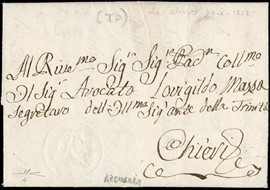 (TO)
Al Rive.mo Sig.r Sig.r Pad.n Coll.mo
Il Sig.r Avocato Lovigildo Massa
Segretaro dell' Ill.ma Sig.
della Trinità
Chieri